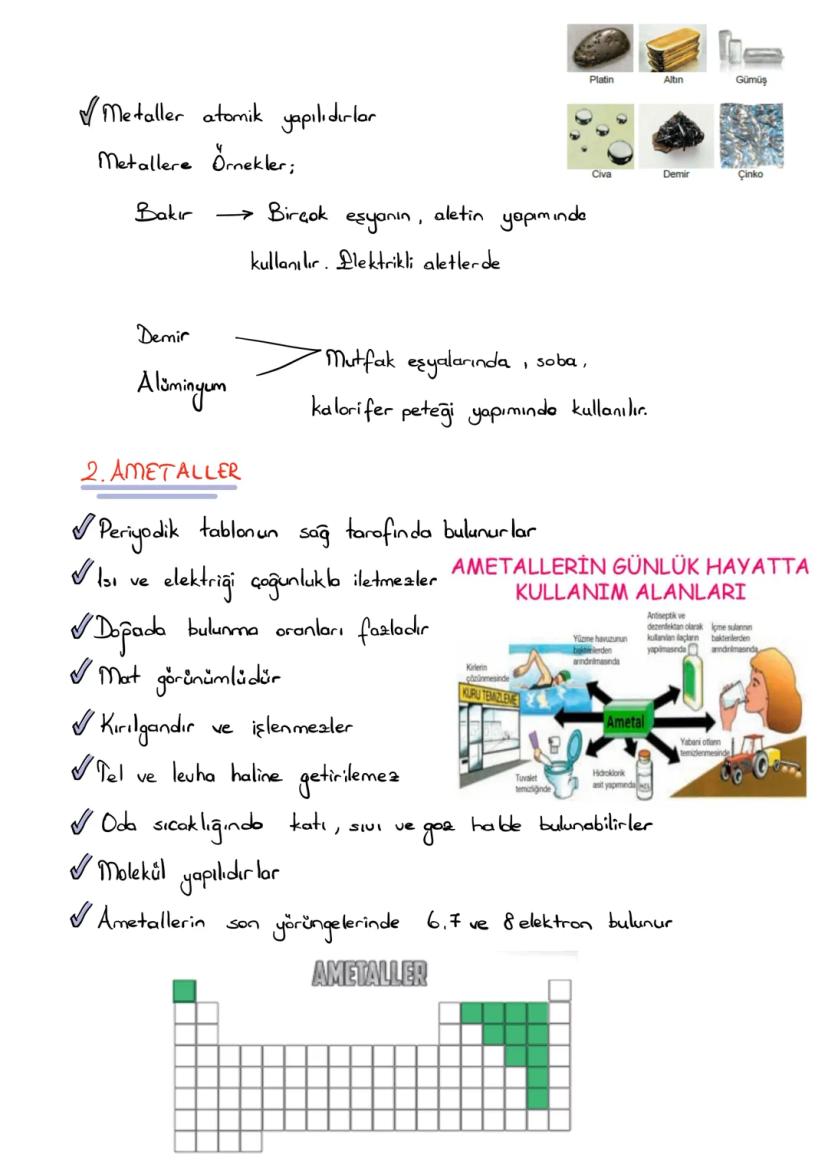 Platin Altın Gümüş
✓ Metaller atomik yapılıdırlar
Metallere Örnekler;
Civa Demir Çinko
Bakır → Birçok eşyanın, aletin yapımında
kullanılır. Elektrikli aletlerde
Demir
Alüminyum
Mutfak eşyalarında, soba,
kalorifer peteği yapımında kullanılır.
2. AMETALLER
✓ Periyodik tablonun sağ tarafında bulunurlar
✓ Isı ve elektriği çoğunlukla iletmezler
✓ Doğada bulunma oranları fazladır
✓ Mat görünümlüdür
✓ Kırılgandır ve işlenmezler
✓ Tel ve levha haline getirilemez
✓ Oda sıcaklığında katı, sıvı ve gaz halde bulunabilirler
✓ Molekül yapılıdırlar
✓ Ametallerin son yörüngelerinde 6,7 ve 8 elektron bulunur
AMETALLERİN GÜNLÜK HAYATTA
KULLANIM ALANLARI
Kirlerin
çözünmesinde
KURU TEMİZLEME
Yüzme havuzunun
bakterilerden
arındırılmasında
Antiseptik ve
dezenfektan olarak
kullanılan ilaçların
yapılmasında
İçme sularının
bakterilerden
arındırılmasında
Ametal
Tuvalet
temizliğinde
Hidroklorik
asit yapımında
Yabani otların
temizlenmesinde
AMETALLER